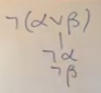 ¬(α∨β)
¬α
¬β